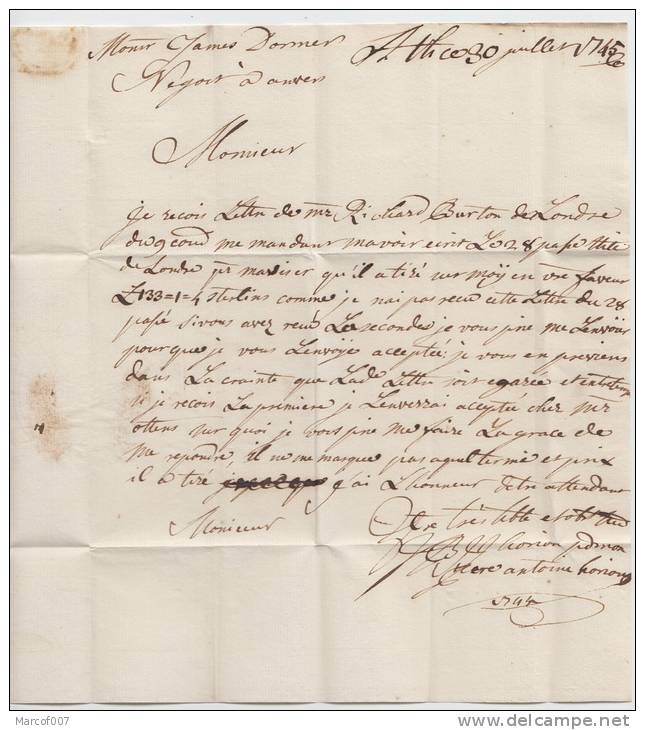 Monsr James Dormer
Negoct à anvers
Ath ce 30 juillet 1745
Monsieur
Je recois Lettre de mr Richard Burton de Londre
du 9 coud me mandant mavoir ecrit Le 28 passé stile
de Londre pr maviser qu'il a tiré sur moÿ en vre faveur
£133=1=4 sterlins comme je nai pas recu cette Lettre du 28
passé si vous avez recu La seconde je vous prie me Lenvoÿer
pour que je vous Lenvoÿe acceptée: je vous en previens
dans La crainte que Lade Lettre soit egarée et entretems
si je recois La premiere je Lenverrai acceptée chez mr
ottens sur quoi je vous prie me faire La grace de
me repondre, il ne me marque pas a quel terme et prix
il a tiré j'ai L'honneur detre attendant
Monsieur
Vre tres hble et obt
horion
frere antoine horion
1744
Marcof007
www.delcampe.net